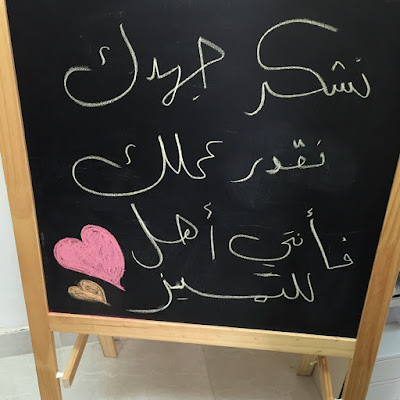 نشكر جهدك
نقدر عملك
فأنتي أهل
للتميز